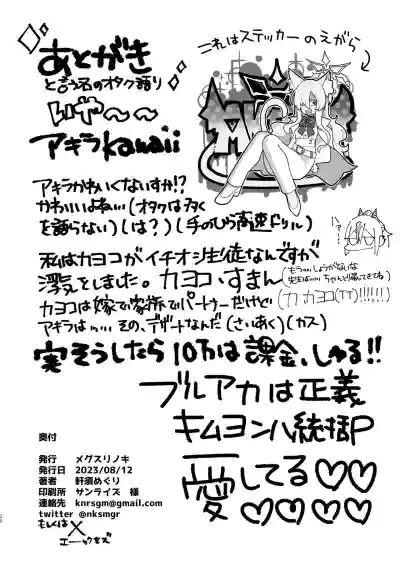 あとがき
と言う名のオタク語り
いや~~
アキラkawaii
これはステッカーのえがら
アキラかわいくないすか!?
かわいいよねぃぃ(オタクは多くを語らない)(は?)(手のひら高速ドリル)
私はカヨコがイチオシ生徒なんですが
浮気をしました。カヨコ、すまん
(もう……しょうがないな
先生は……ちゃんと帰ってきてね)
カヨコは嫁で家族でパートナーだけど(カ、カヨコ(TT)!!!!!!)
アキラは……その、デザートなんだ(さいあく)(カス)
実そうしたら10万は課金、しゅる!!
ブルアカは正義
キムヨンハ統括P
愛してる♡♡♡♡♡♡
奥付
発行 メグスリノキ
発行日 2023/08/12
著者 軒須めぐり
印刷所 サンライズ 様
連絡先 knrsgm@gmail.com
twitter @nksmgr
もしくはX
エックスズ